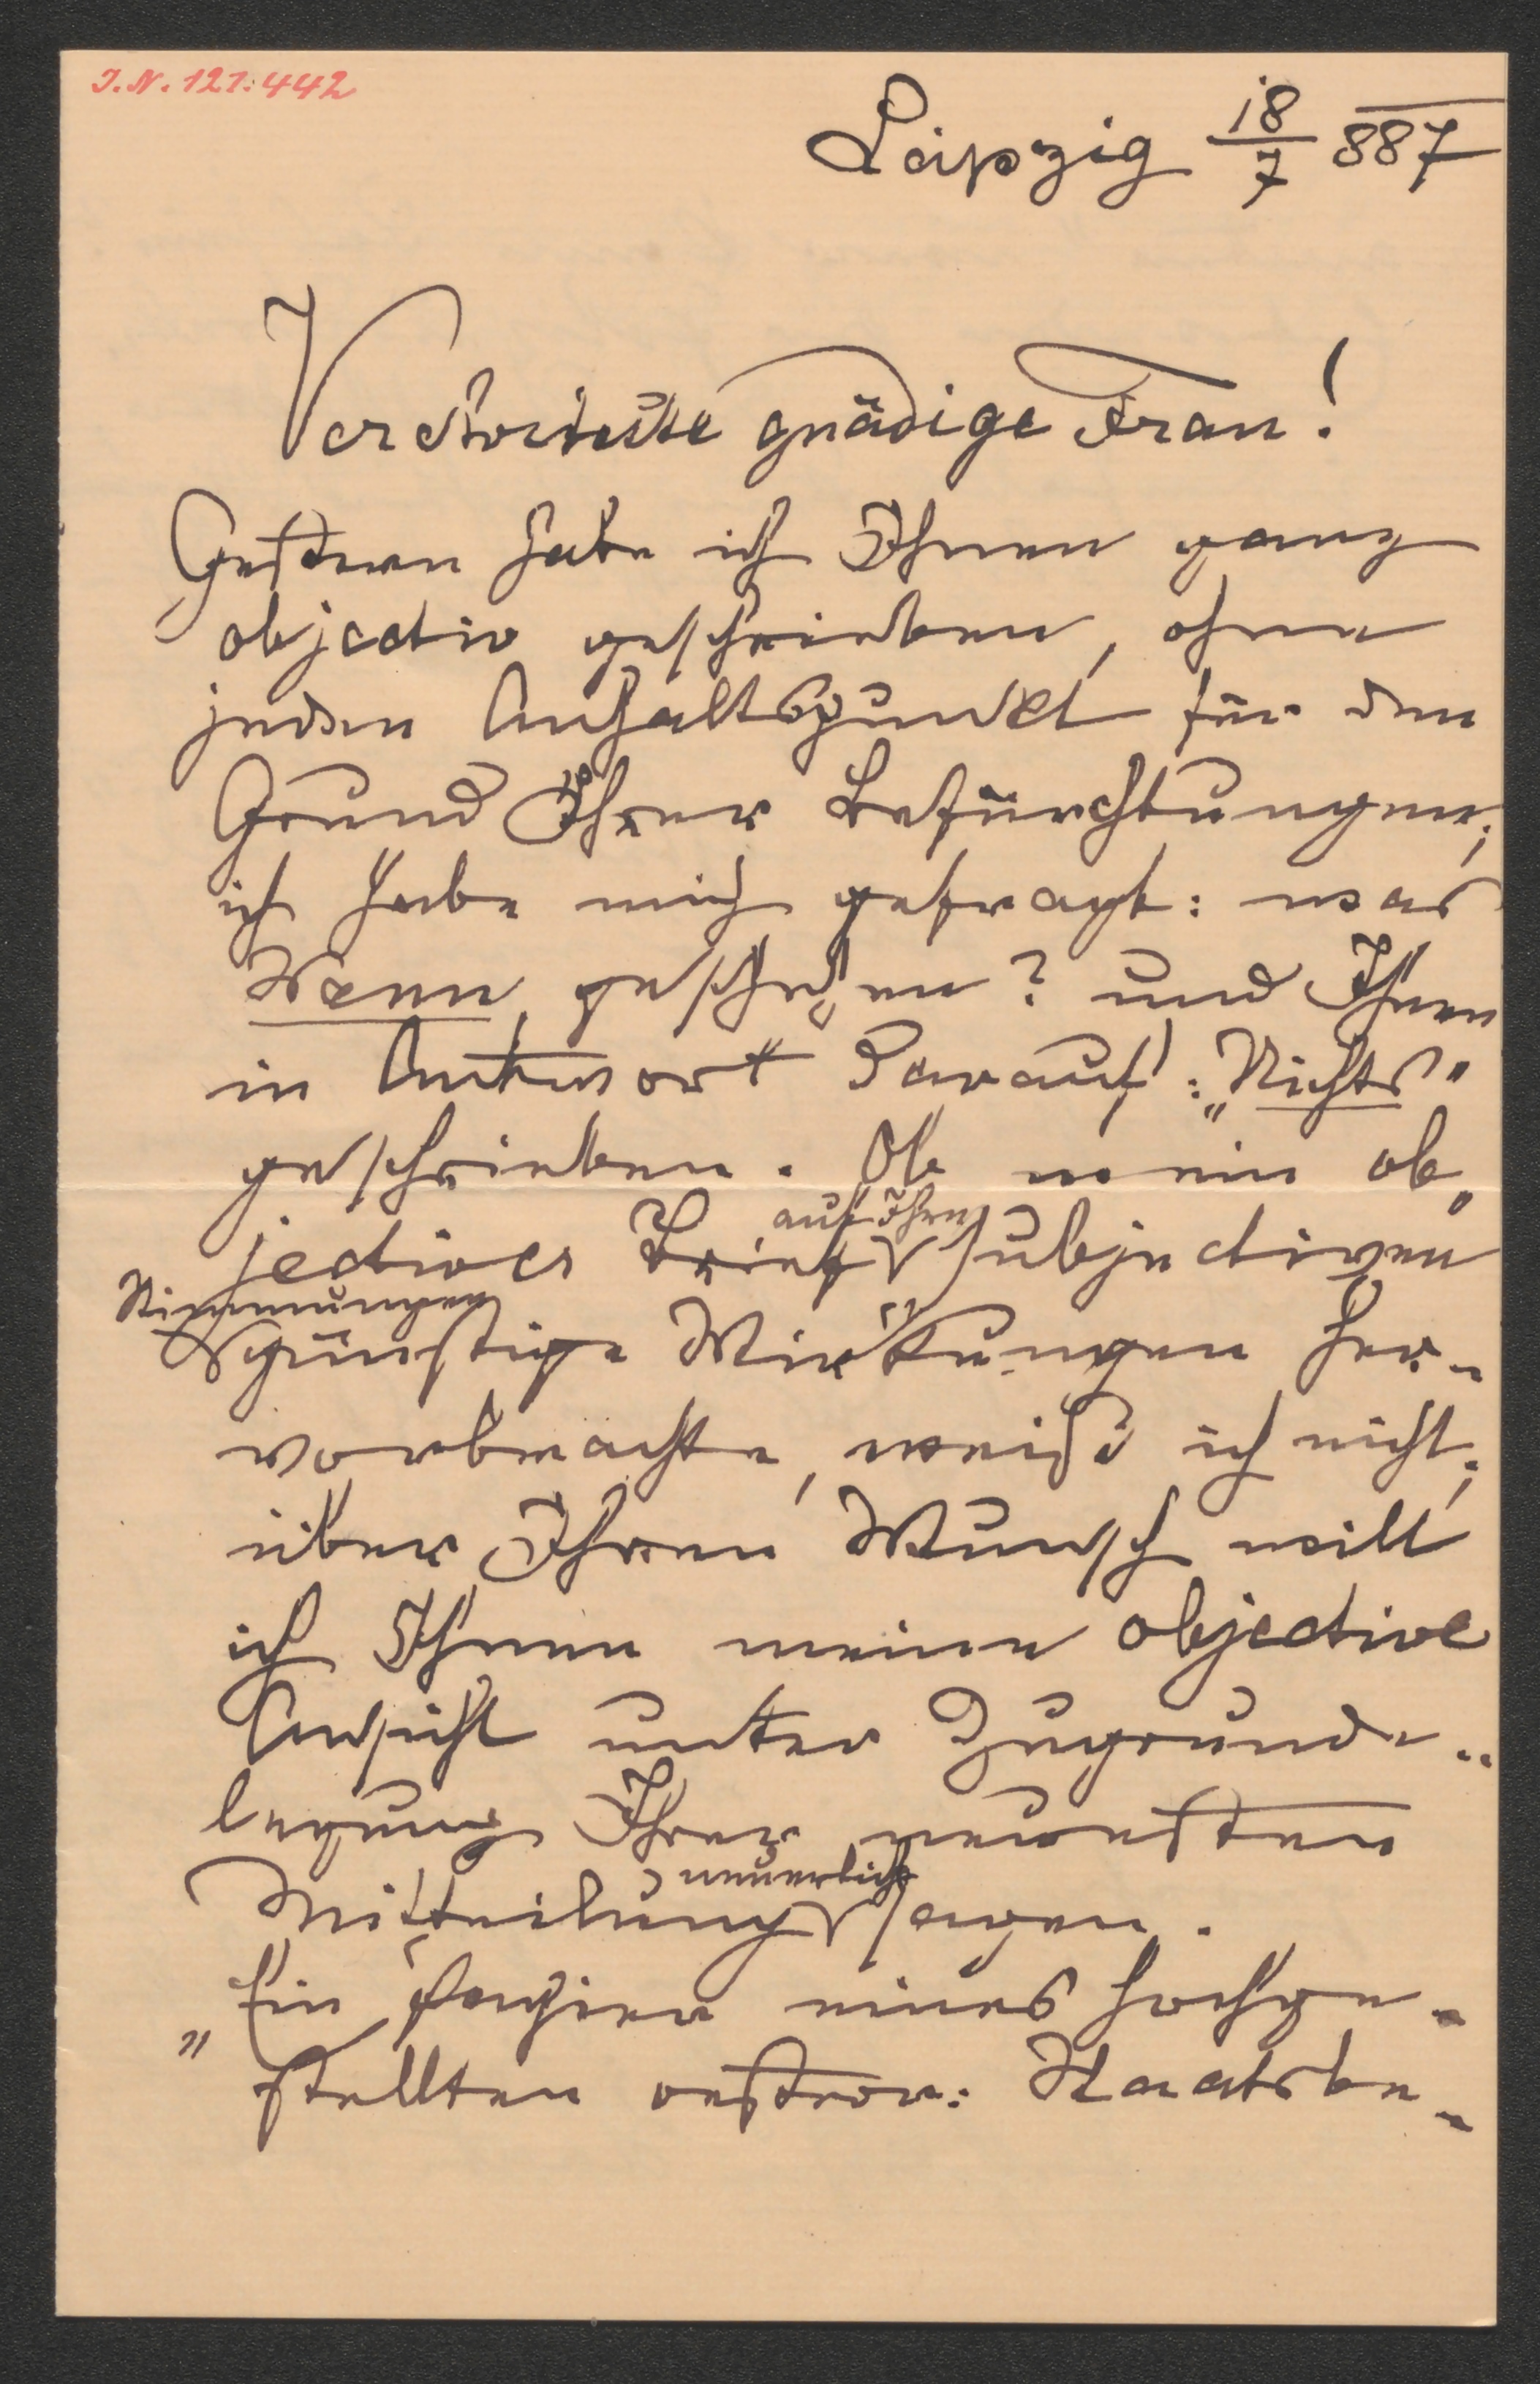 I. N. 121.442
Leipzig 18/7 887
Verehrteste gnädige Frau!
Gestern habe ich Ihnen ganz
objectiv geschrieben, ohne
jeden Anhaltspunkt für den
Grund Ihrer Befürchtungen;
ich habe mich gefragt: was
kann geschehen? und Ihnen
in Antwort darauf: „Nichts"
geschrieben. Ob mein ob„
auf Ihre
jectiver Brief subjectiven
Stimmungen
günstige Wirkungen her-
vorbrachte, weiß ich nicht;
über Ihren Wunsch will
ich Ihnen meine objective
Ansicht unter Zugrunde-
legung Ihrer neuesten
neuerlich
Mitteilung sagen.
„Ein Papier eines hochge-
stellten oesterr: Staatsbe-